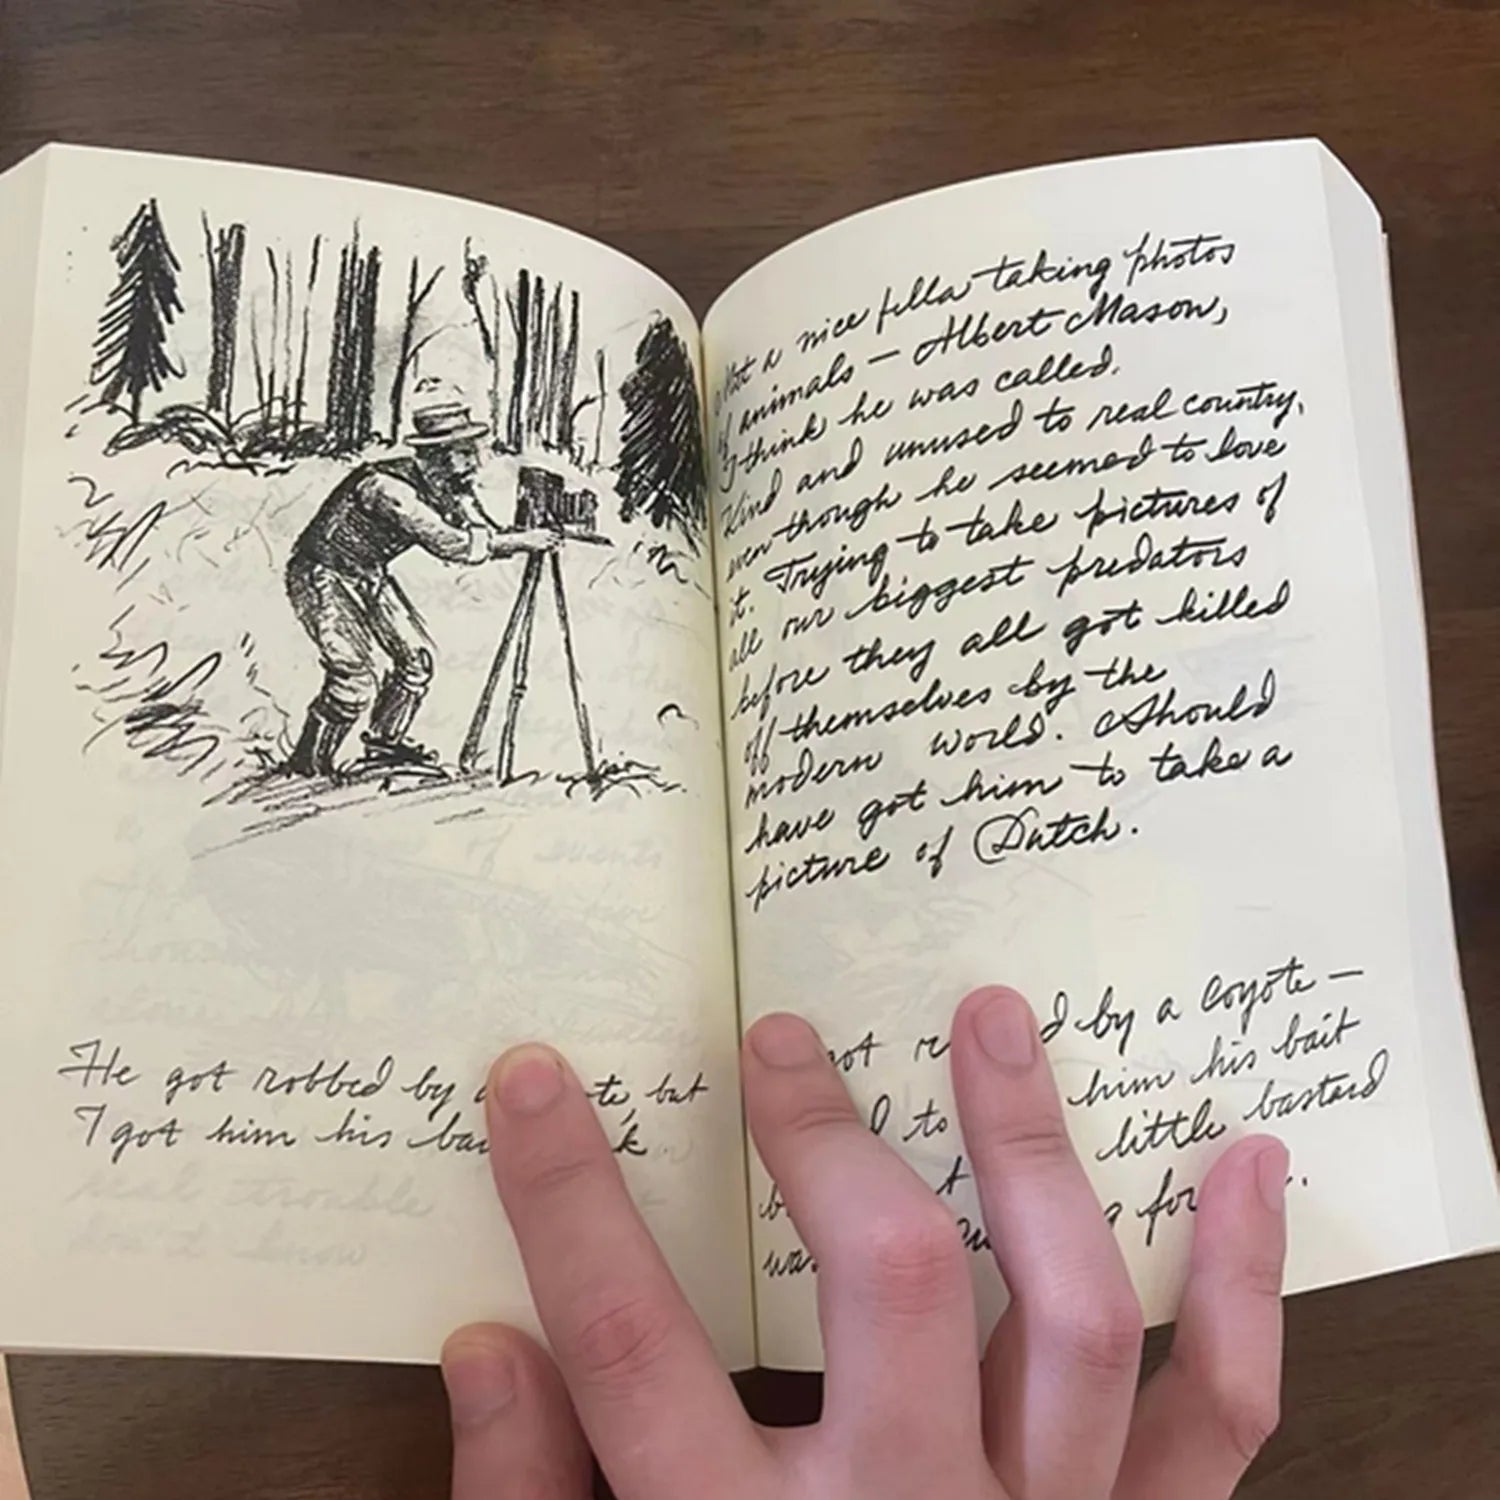 He got robbed by a but
I got him his
Met a nice fella taking photos
of animals — Albert Mason,
I think he was called.
Kind and unused to real country,
even though he seemed to love
it. Trying to take pictures of
all our biggest predators
before they all got killed
off themselves by the
modern world. Should
have got him to take a
picture of Dutch.
got by a coyote —
to him his bait
little bastard
was